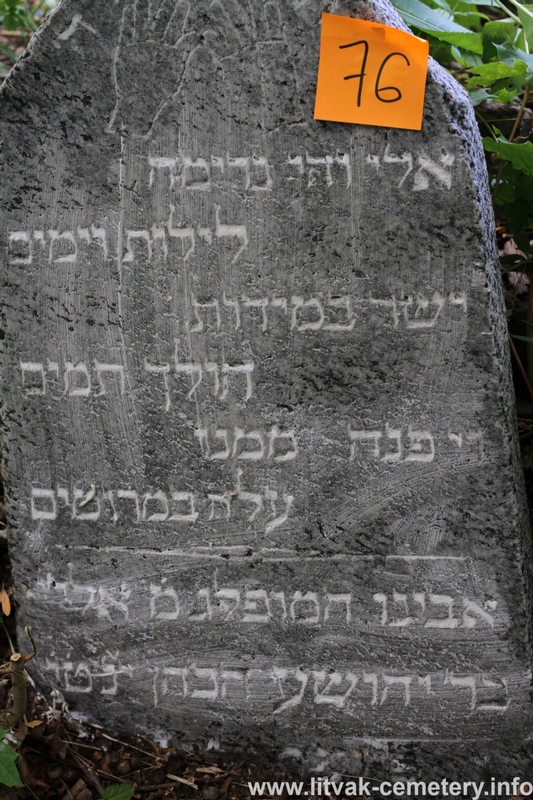 76
אלי והי
לילות וימים
ישר במידות
הולך תמים
וי פנה ממנו
עלה במרומים
אבינו המופלג מ אלי'
בר יהושע הכהן
www.litvak-cemetery.info